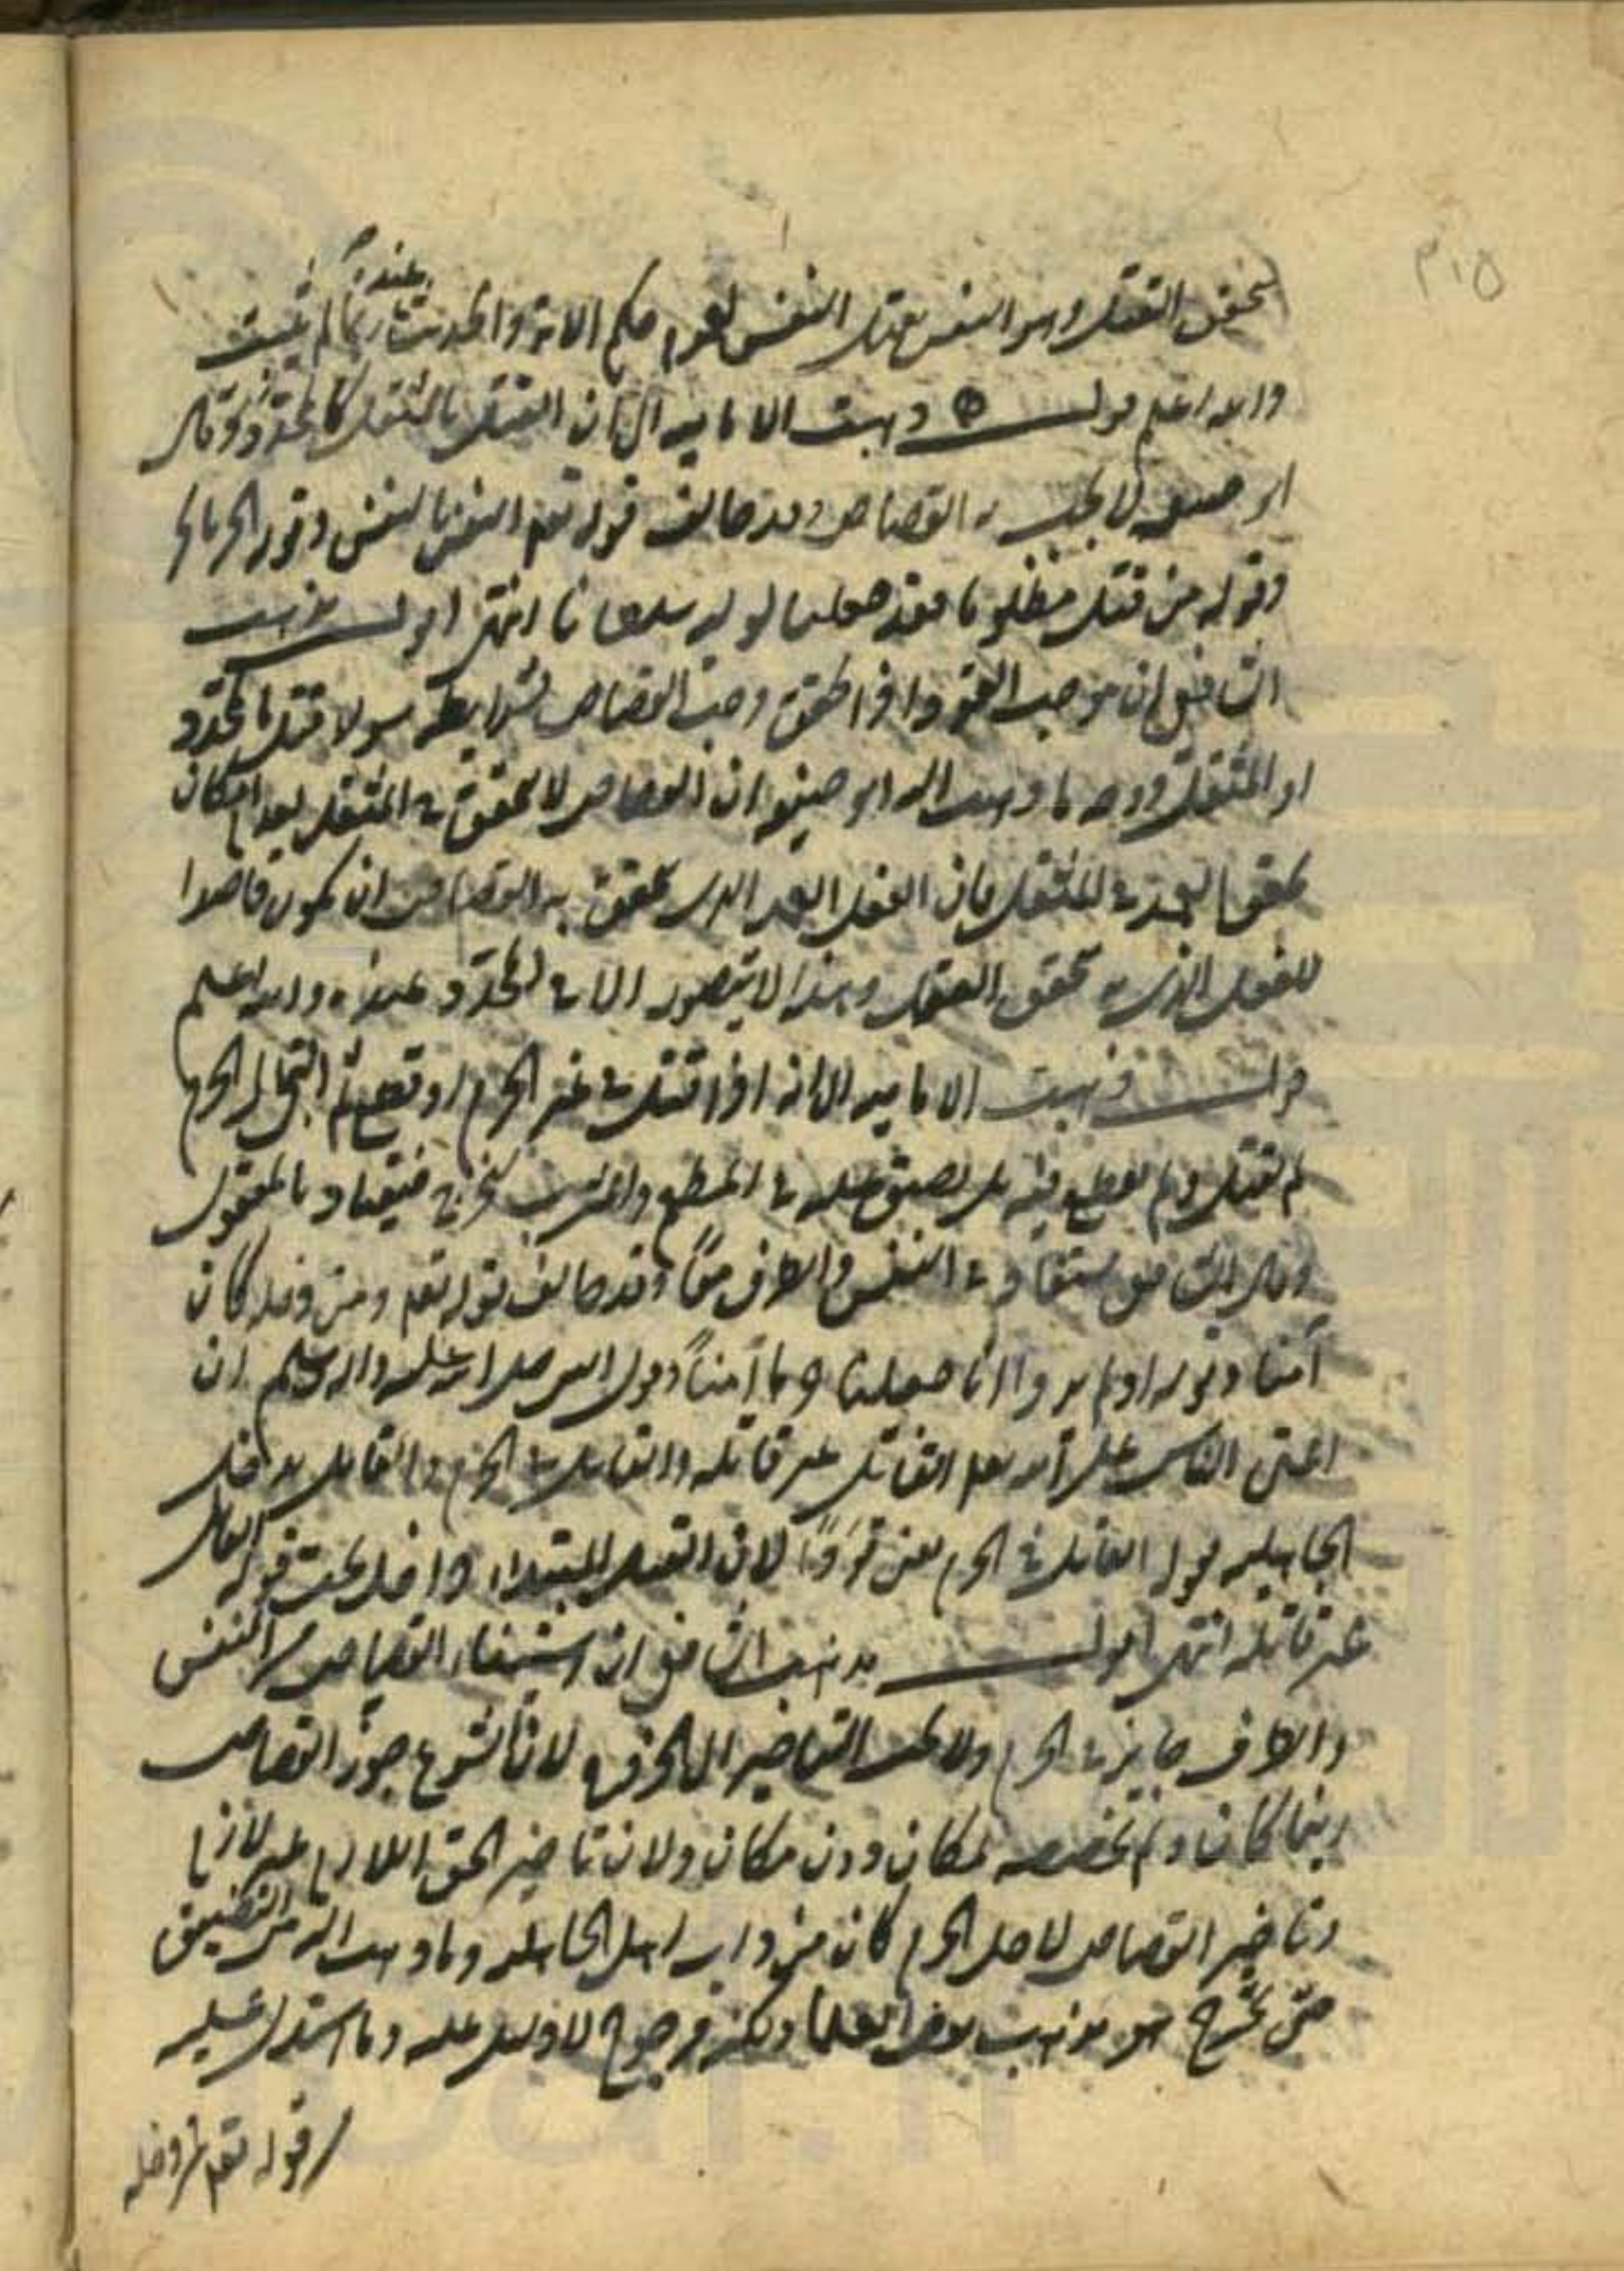 ٢١٥
لتحقق القتل وهو النفس بقتل النفس لعموم حكم الآية والحديث عنده ربما لم يثبت
والله اعلم قوله ذهبت الامامية الى ان القتل بالمثقل كالمحدد وقال
ابو حنيفة لا يجب به القصاص وقد خالف قوله تعم النفس بالنفس وقوله الحر بالحر
وقوله من قتل مظلوما فقد جعلنا لوليه سلطانا انتهى اقول مذهب
الشافعي ان موجب العقود اذا تحقق وجب القصاص بشرايطه سواء قتل بالمحدد
او المثقل ووجه ما ذهب اليه ابو حنيفة ان القصاص لا يتحقق في المثقل لعدم امكان
تحقق العمد في المثقل فان الفعل العمد الذي يتحقق به القصاص ان يكون قاصدا
للفعل الذي به تحقق القتل وهذا لا يتصور الا في المحدد عنده والله اعلم
قوله ذهبت الامامية الى انه اذا قتل في غير الحرم او قطع ثم التجأ الى الحرم
لم يقتل ولم يقطع فيه بل يضيق عليه في المطعم والمشرب ليخرج فيقاد بالمقتول
وقال الشافعي يستقاد في النفس والطرف معًا وقد خالف قوله تعم ومن دخله كان
آمنا وقوله اولم يروا انا جعلنا حرما آمناً وقول النبي صلى الله عليه واله وسلم ان
اعتى الناس على الله تعم القاتل غير قاتله والقاتل في الحرم والقاتل بدخل
الجاهلية قوله القاتل في الحرم يعني قودًا لان القتل المبتدا داخل تحت قوله القاتل
غير قاتله انتهى اقول مذهب الشافعي ان استيفاء القصاص في النفس
والطرف جايز في الحرم ولا يجب التاخير الى الخروج لان الشرع جوز القصاص
اينما كان ولم يخصصه لمكان دون مكان ولان تاخير الحق اللازم غير لازم
وتاخير القصاص لاجل الحرم كان من داب اهل الجاهلية وما ذهب اليه من التضييق
حتى يخرج هو مذهب بعض العلما ولكنه مرجوح لا دليل عليه وما استدل عليه
من قوله تعم من دخله